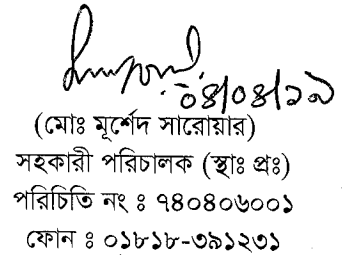 ০৪/০৪/১৯
(মোঃ মূর্শেদ সারোয়ার)
সহকারী পরিচালক (স্থাঃ প্রঃ)
পরিচিতি নং ঃ ৭৪০৪০৬০০১
ফোন ঃ ০১৮১৮-৩৯১২৩১